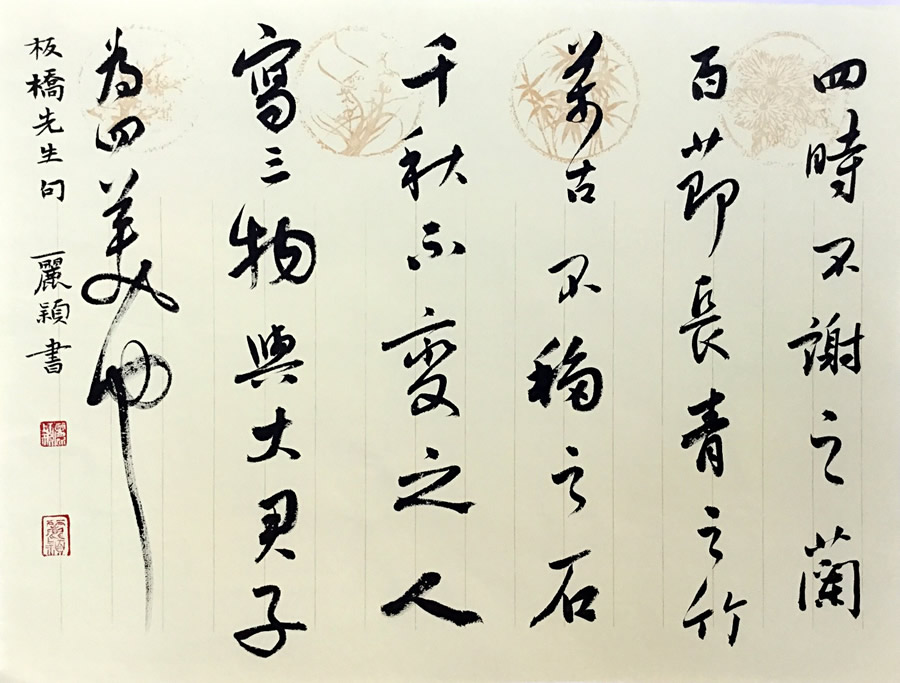 四時不謝之蘭
百節長青之竹
萬古不移之石
千秋不變之人
寫三物與大君子
為四美也
板橋先生句 麗穎書